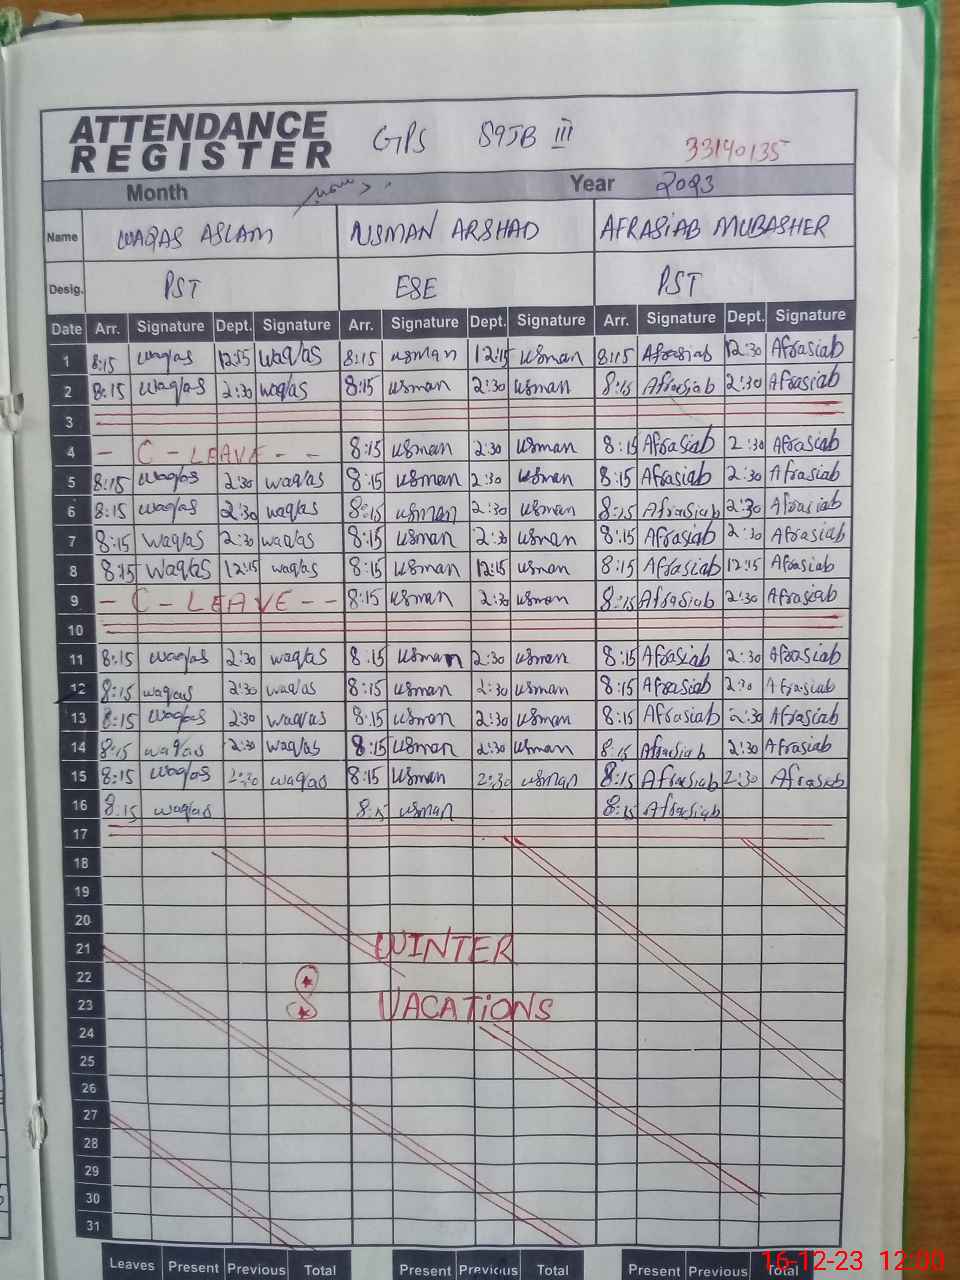 ATTENDANCE REGISTER GPS 59JB III 33140135
Month Year 2023
Name WAQAS ASLAM USMAN ARSHAD AFRASIAB MUBASHER
Desig. PST ESE PST
Date Arr. Signature Dept. Signature Arr. Signature Dept. Signature Arr. Signature Dept. Signature
1 8:15 waqas 12:15 waqas 8:15 usman 12:15 usman 8:15 Afrasiab 12:30 Afrasiab
2 8:15 waqas 2:30 waqas 8:15 usman 2:30 usman 8:15 Afrasiab 2:30 Afrasiab
3
4 - C - LEAVE - - 8:15 usman 2:30 usman 8:15 Afrasiab 2:30 Afrasiab
5 8:15 waqas 2:30 waqas 8:15 usman 2:30 usman 8:15 Afrasiab 2:30 Afrasiab
6 8:15 waqas 2:30 waqas 8:15 usman 2:30 usman 8:15 Afrasiab 2:30 Afrasiab
7 8:15 waqas 2:30 waqas 8:15 usman 2:30 usman 8:15 Afrasiab 2:30 Afrasiab
8 8:15 waqas 12:15 waqas 8:15 usman 12:15 usman 8:15 Afrasiab 12:15 Afrasiab
9 - C - LEAVE - - 8:15 usman 2:30 usman 8:15 Afrasiab 2:30 Afrasiab
10
11 8:15 waqas 2:30 waqas 8:15 usman 2:30 usman 8:15 Afrasiab 2:30 Afrasiab
12 8:15 waqas 2:30 waqas 8:15 usman 2:30 usman 8:15 Afrasiab 2:30 Afrasiab
13 8:15 waqas 2:30 waqas 8:15 usman 2:30 usman 8:15 Afrasiab 2:30 Afrasiab
14 8:15 waqas 2:30 waqas 8:15 usman 2:30 usman 8:15 Afrasiab 2:30 Afrasiab
15 8:15 waqas 2:30 waqas 8:15 usman 2:30 usman 8:15 Afrasiab 2:30 Afrasiab
16 8:15 waqas 8:15 usman 8:15 Afrasiab
17
18
19
20
21 WINTER
22
23 VACATIONS
24
25
26
27
28
29
30
31
Leaves Present Previous Total Present Previous Total Present Previous Total
16-12-23 12:00